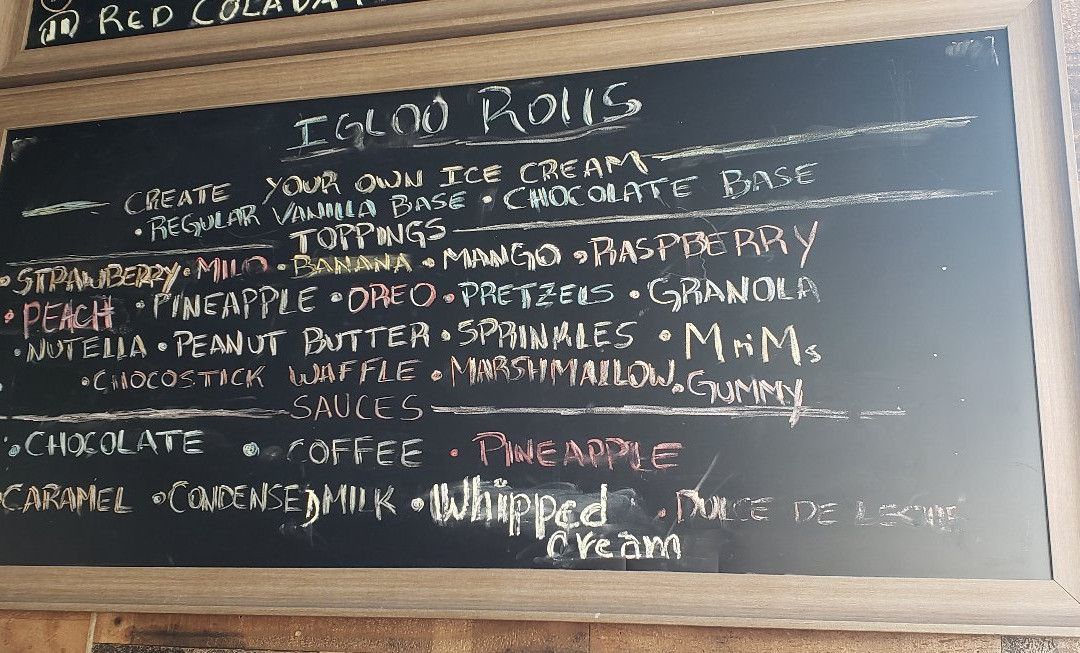 RED COLADA
IGLOO ROllS
CREATE YOUR OWN ICE CREAM
• REGULAR VANILLA BASE • CHOCOLATE BASE
TOPPINGS
• STRAWBERRY • MILO • BANANA • MANGO • RASPBERRY
• PEACH • PINEAPPLE • OREO • PRETZELS • GRANOLA
• NUTELLA • PEANUT BUTTER • SPRINKLES • MnMs
• CHOCOSTICK WAFFLE • MARSHMALLOW • GUMMY
SAUCES
• CHOCOLATE • COFFEE • PINEAPPLE
CARAMEL • CONDENSED MILK • Whipped • DULCE DE LECHE
Cream